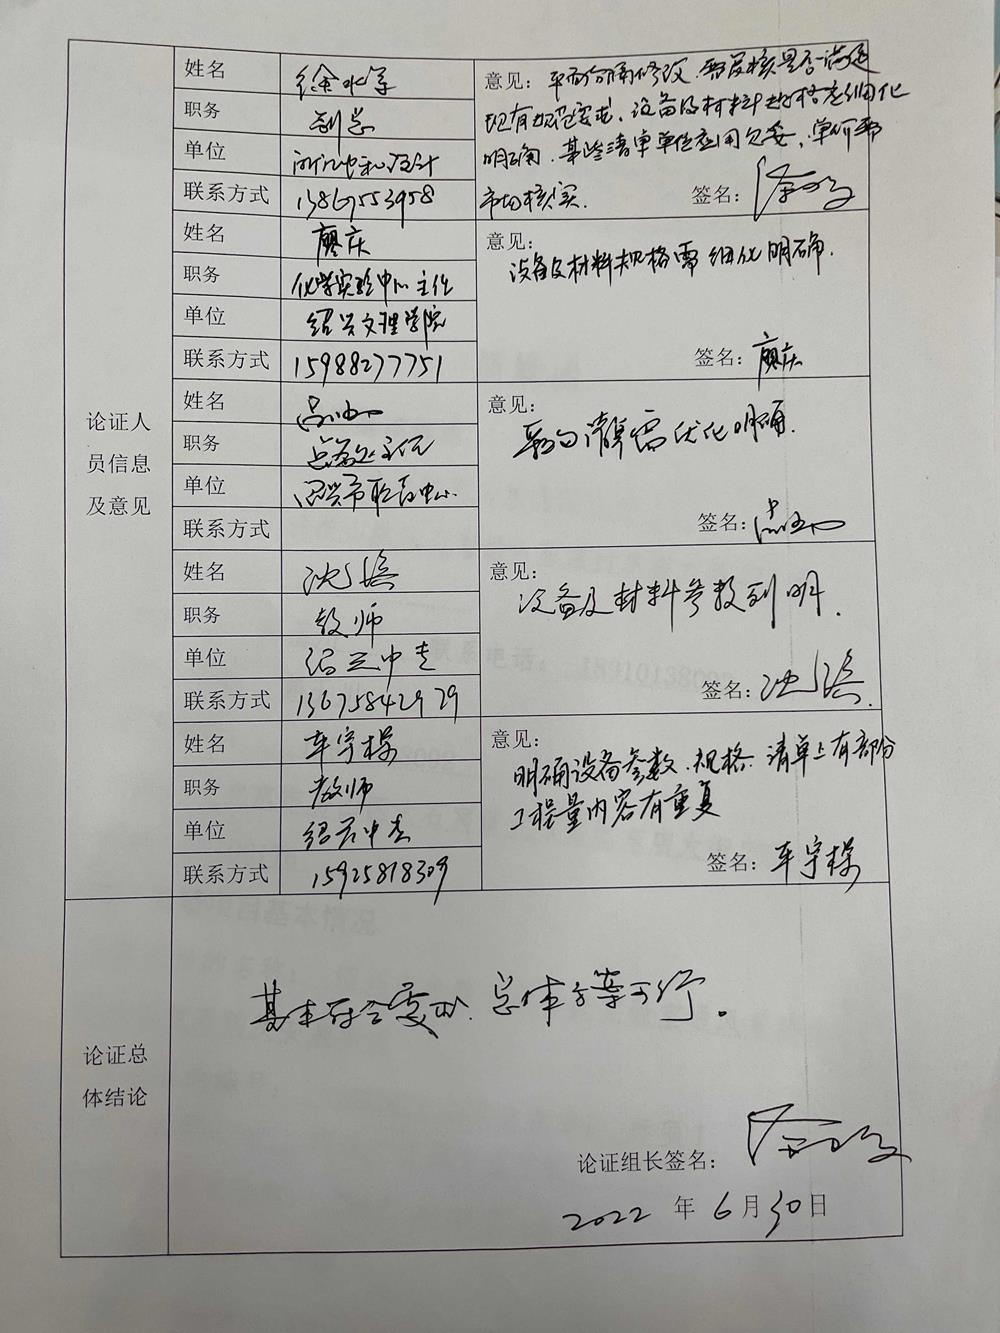 姓名 徐水
职务 副总
单位
联系方式 13867553958
意见：平面分隔修改，需复核是否满足
现有规范要求，设备及材料规格应细化
明确，某些清单单位应用欠妥，单价需
市场核实。
签名：
姓名 廖庆
职务 化学实验中心主任
单位 绍兴文理学院
联系方式 15988277751
意见：
设备及材料规格需细化明确。
签名：廖庆
姓名
职务 主任
单位 绍兴市职教中心
联系方式
意见：
清单需优化明确。
签名：
姓名 沈
职务 教师
单位 绍兴中专
联系方式 13675842929
意见：
设备及材料参数列明。
签名：沈
姓名 车宇楺
职务 教师
单位 绍兴中专
联系方式 15925818309
意见：
明确设备参数、规格。清单上有部份
工程量内容有重复
签名：车宇楺
论证人
员信息
及意见
论证总
体结论
基本符合要求，总体方案可行。
论证组长签名：
2022 年 6 月 30 日